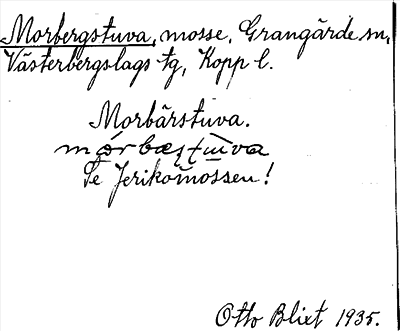 Morbergstuva, mosse, Grangärde sn,
Västerbergslags tg, Kopp l.
Morbärstuva.
Se Jerikomossen!
Otto Blixt 1935.